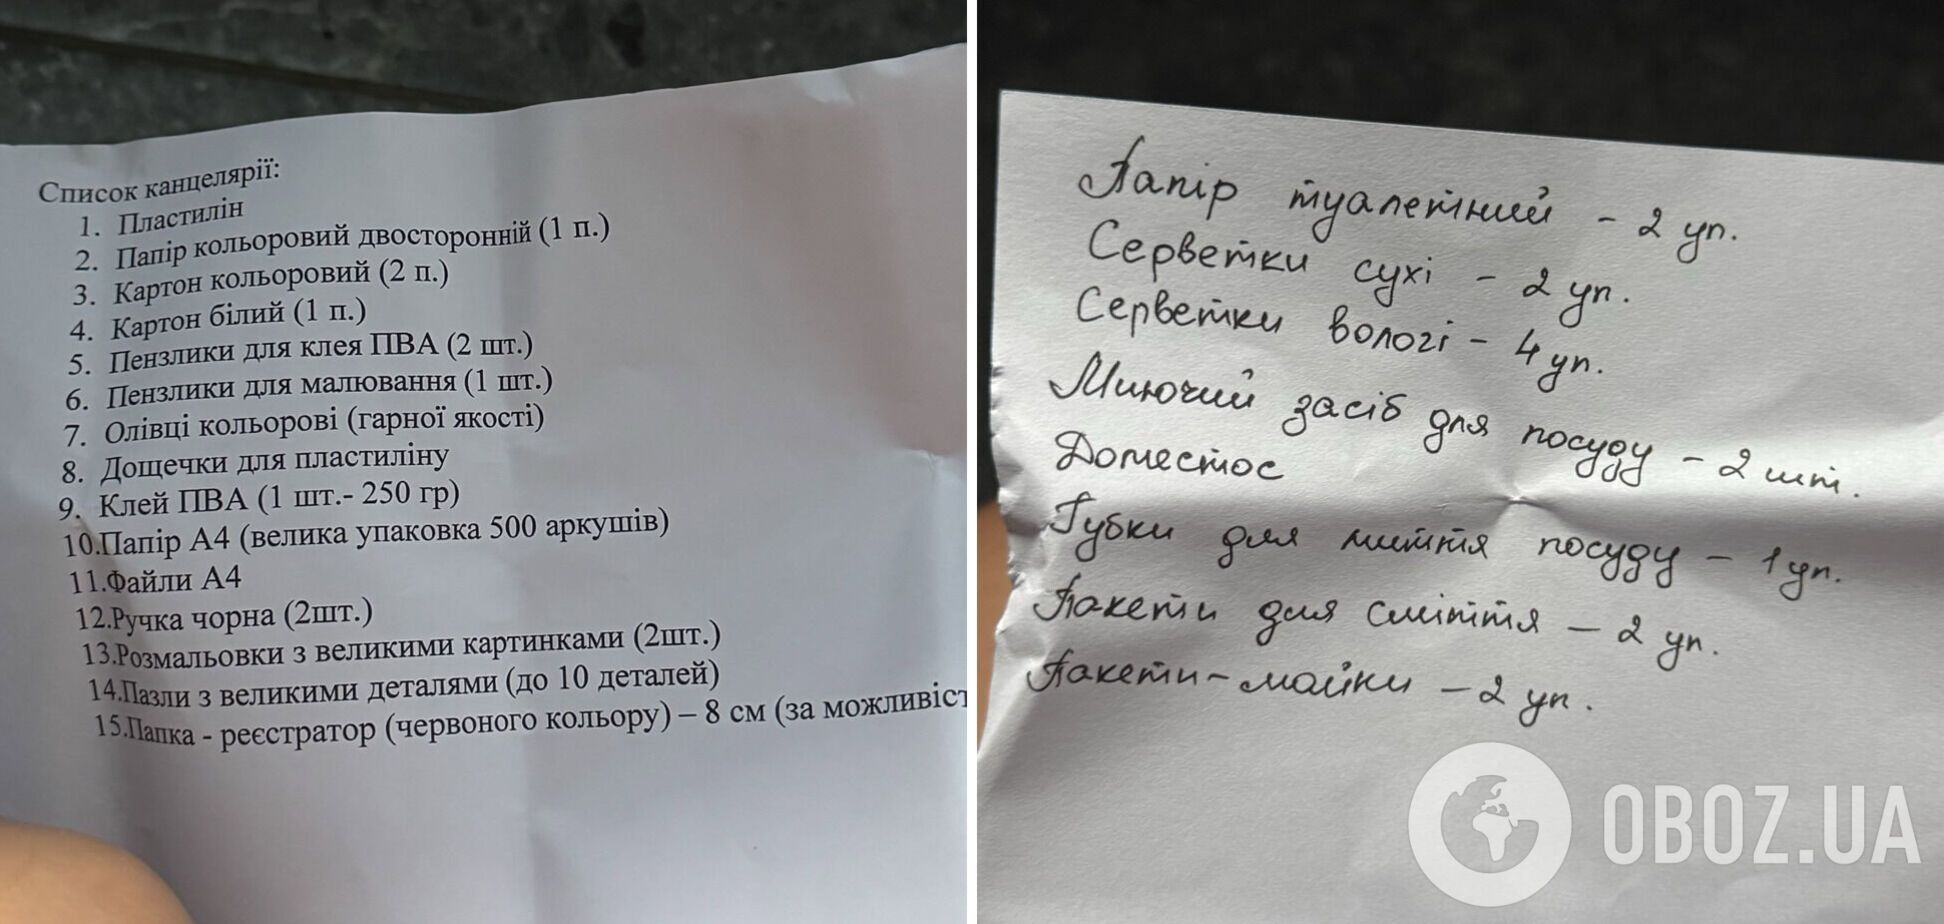 Список канцелярії:
1. Пластилін
2. Папір кольоровий двосторонній (1 п.)
3. Картон кольоровий (2 п.)
4. Картон білий (1 п.)
5. Пензлики для клея ПВА (2 шт.)
6. Пензлики для малювання (1 шт.)
7. Олівці кольорові (гарної якості)
8. Дощечки для пластиліну
9. Клей ПВА (1 шт.- 250 гр)
10.Папір А4 (велика упаковка 500 аркушів)
11.Файли А4
12.Ручка чорна (2шт.)
13.Розмальовки з великими картинками (2шт.)
14.Пазли з великими деталями (до 10 деталей)
15.Папка - реєстратор (червоного кольору) – 8 см (за можливіст
Папір туалетний - 2 уп.
Серветки сухі - 2 уп.
Серветки вологі - 4 уп.
Миючий засіб для посуду - 2 шт.
Доместос
Губки для миття посуду - 1 уп.
Пакети для сміття - 2 уп.
Пакети-майки - 2 уп.
OBOZ.UA